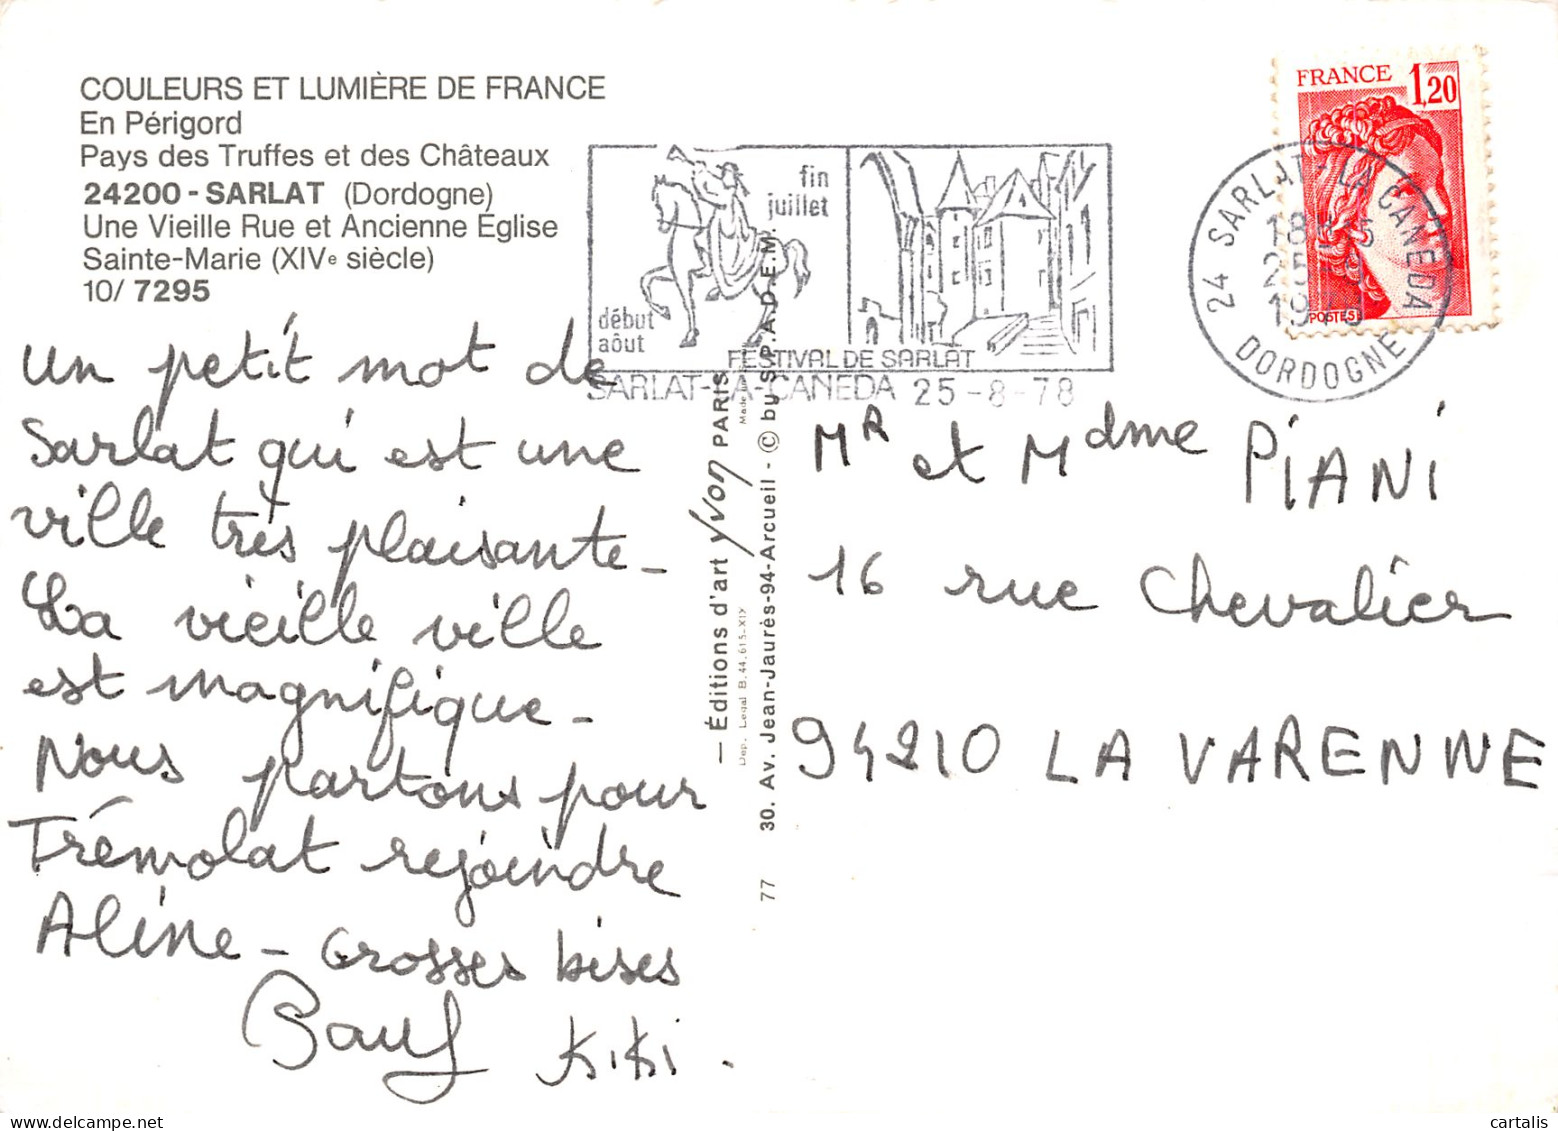 COULEURS ET LUMIÈRE DE FRANCE
En Périgord
Pays des Truffes et des Châteaux
24200 - SARLAT (Dordogne)
Une Vieille Rue et Ancienne Église
Sainte-Marie (XIVe siècle)
10/ 7295
Un petit mot de
Sarlat qui est une
ville très plaisante_
La vieille ville
est magnifique_
Nous partons pour
Trémolat rejoindre
Aline_ Grosses bises
KiKi.
— Éditions d'art Yvon PARIS
Dep. Legal B. 44.615-XIV
30. Av. Jean-Jaurès-94-Arcueil - © by S.P.A.D.E.M.
77
fin
juillet
début
aôut
FESTIVAL DE SARLAT
SARLAT-LA-CANEDA 25-8-78
FRANCE 1,20
POSTES
24 SARLAT-LA CANEDA
DORDOGNE
Mr et Mdme PiANi
16 rue Chevalier
94210 LA VARENNE
cartalis